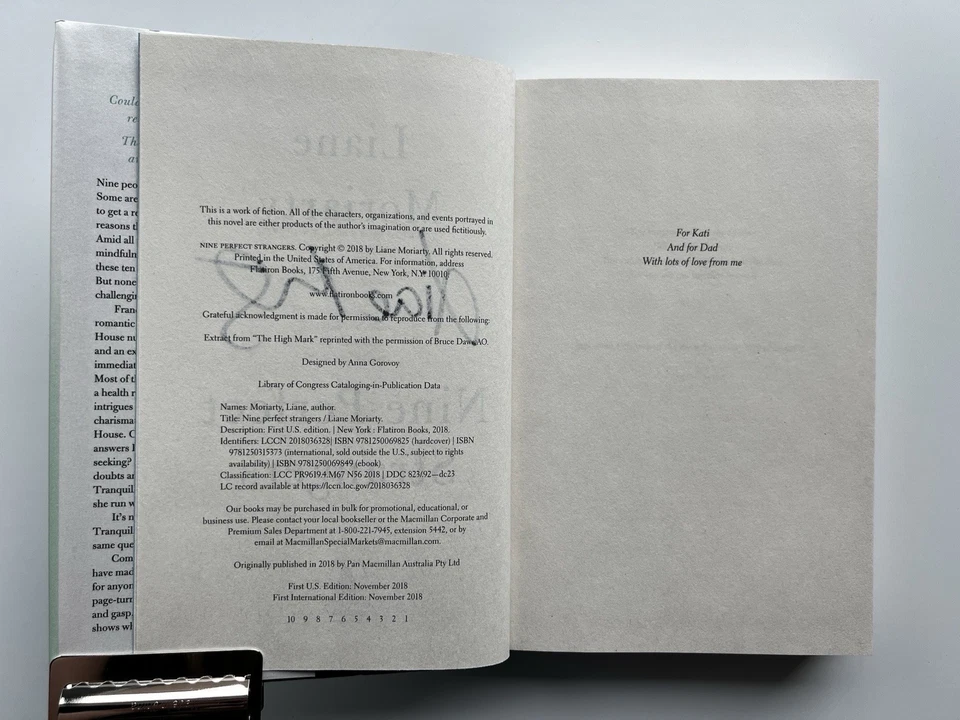 Could
re
Th
av
Nine peo
Some are
to get a re
reasons t
Amid all
mindfuln
these ten
But none
challengi
Fran
romantic
House nu
and an ex
immediat
Most of t
a health r
intrigues
charisma
House. C
answers I
seeking?
doubts an
Tranquil
she run w
It's n
Tranquil
same que
Com
have mad
for anyon
page-turn
and gasp
shows wh
Liane
Nine P
This is a work of fiction. All of the characters, organizations, and events portrayed in
this novel are either products of the author's imagination or are used fictitiously.
NINE PERFECT STRANGERS. Copyright © 2018 by Liane Moriarty. All rights reserved.
Printed in the United States of America. For information, address
Flatiron Books, 175 Fifth Avenue, New York, N.Y. 10010.
www.flatironbooks.com
Grateful acknowledgment is made for permission to reproduce from the following:
Extract from "The High Mark" reprinted with the permission of Bruce Dawe AO.
Designed by Anna Gorovoy
Library of Congress Cataloging-in-Publication Data
Names: Moriarty, Liane, author.
Title: Nine perfect strangers / Liane Moriarty.
Description: First U.S. edition. | New York : Flatiron Books, 2018.
Identifiers: LCCN 2018036328| ISBN 9781250069825 (hardcover) | ISBN
9781250315373 (international, sold outside the U.S., subject to rights
availability) | ISBN 9781250069849 (ebook)
Classification: LCC PR9619.4.M67 N56 2018 | DDC 823/.92—dc23
LC record available at https://lccn.loc.gov/2018036328
Our books may be purchased in bulk for promotional, educational, or
business use. Please contact your local bookseller or the Macmillan Corporate and
Premium Sales Department at 1-800-221-7945, extension 5442, or by
email at MacmillanSpecialMarkets@macmillan.com.
Originally published in 2018 by Pan Macmillan Australia Pty Ltd
First U.S. Edition: November 2018
First International Edition: November 2018
10 9 8 7 6 5 4 3 2 1
For Kati
And for Dad
With lots of love from me